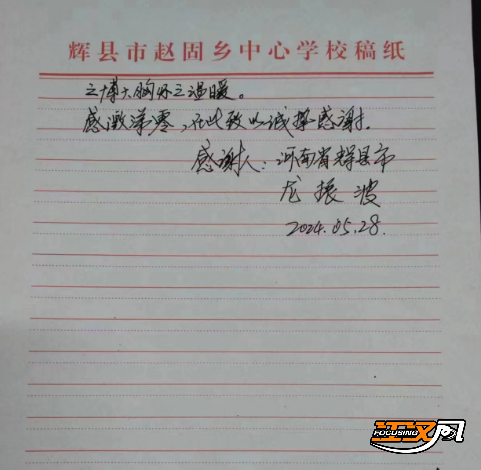 辉县市赵固乡中心学校稿纸
之博大胸怀之温暖。
感激涕零，在此致以诚挚感谢。
感谢人：河南省辉县市
龙振波
2024.05.28.
FOCUSING